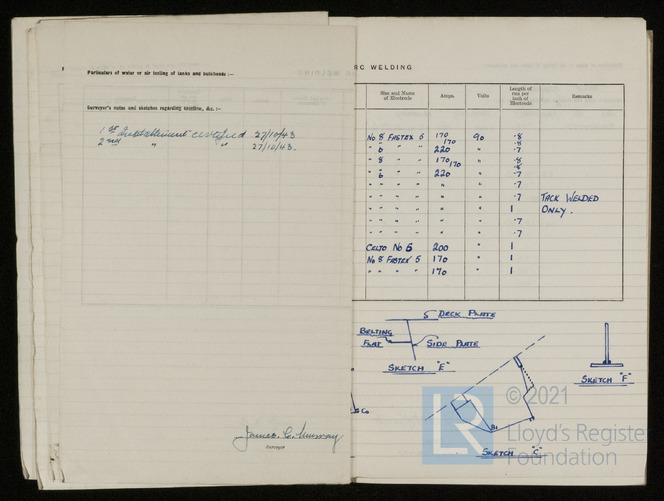 Particulars of water or air testing of tanks and bulkheads :—
Surveyor's notes and sketches regarding
1st Instalment certified 27/10/43
2nd " " 27/10/43.
James C. Murray
Surveyor
RC WELDING
Size and Name of Electrode
Amps.
Volts
Length of run per inch of Electrode
Remarks
No 8 FASTEX 5 170 90 .8
170 .8
" 6 " " 220 " .7
" 8 " " 170 .8
170 .8
" 6 " " 220 " .7
" " " " " .7
" " " " " .7 TACK WELDED
" " " " " 1 ONLY.
" " " " " .7
" " " " " .7
CELTO No 6 200 " 1
No 8 FASTEX 5 170 " 1
" " " " 170 " 1
DECK PLATE
BELTING
FLAT
SIDE PLATE
SKETCH "E"
SKETCH "F"
SKETCH "C"
LR
© 2021
Lloyd's Register
Foundation